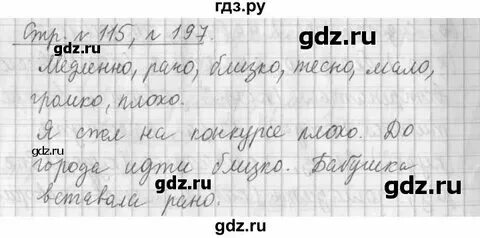 гдз.ру
Стр. № 115, № 197.
Медленно, рано, близко, тесно, мало,
громко, плохо.
gdz.ru gdz.ru
Я спел на конкурсе плохо. До
города идти близко. Бабушка
gdz.ru gdz.ru
вставала рано.
gdz.ru